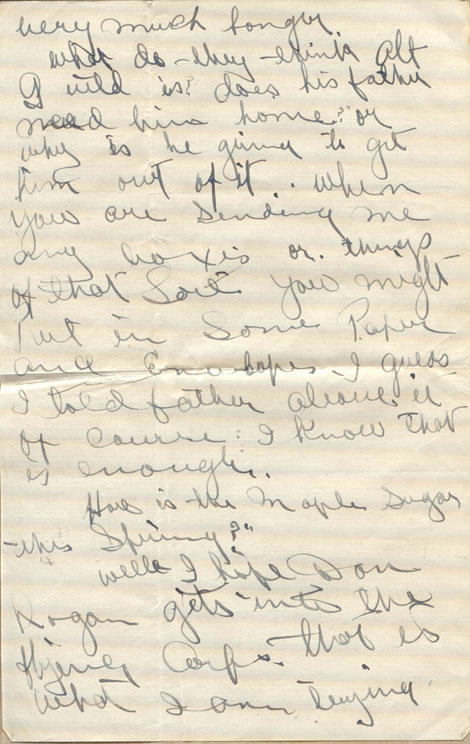 very much longer.
what do they think Alt
Guild is? does his father
need him home?" or
why is he going to get
him out of it. when
you are sending me
any boxes or things
of that Sort you might
put in Some Paper
and Envelopes I guess
I told father about it
of course I know that
is enough.
How is the Maple Sugar
this Spring?"
well I hope Don
Rogan gets into the
flying Corps. that is
what I am